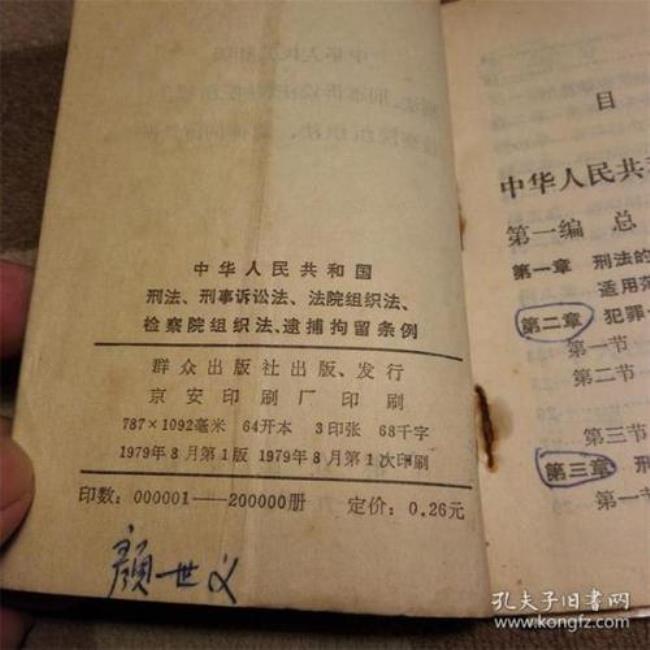 中华人民共和国
刑法、刑事诉讼法、法院组织法、
检察院组织法、逮捕拘留条例
群众出版社出版、发行
京安印刷厂印刷
787×1092毫米 64开本 3印张 68千字
1979年8月第1版 1979年8月第1次印刷
印数：000001——200000册 定价：0.26元
颜世义
目
中华人民共和
第一编 总
第一章 刑法的
适用范
第二章 犯罪
第一节
第二节
第三节
第三章 刑
第一节
孔夫子旧书网
www.kongfz.com